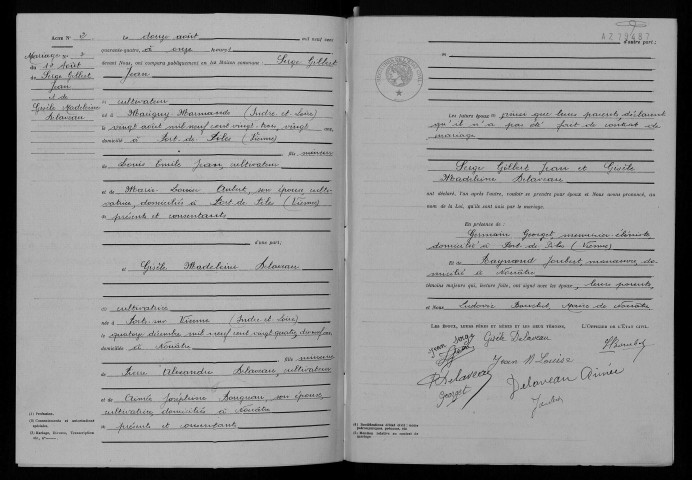 ACTE N° 2
Mariage n° 2
du 12 Août
de Serge Gilbert
Jean
et de
Gisèle Madeleine
Delaveau
Le douze août mil neuf cent
quarante-quatre, à onze heures
devant Nous, ont comparu publiquement en la Maison commune : Serge Gilbert
Jean
cultivateur
né à Marigny-Marmande (Indre-et-Loire)
le vingt août mil neuf cent vingt-trois, vingt ans,
domicilié à Port de Piles (Vienne)
fils mineur
de Louis Emile Jean, cultivateur
et de Marie Louise Aubert, son épouse, culti-
vatrice, domiciliés à Port de Piles (Vienne)
présents et consentants
d'une part;
et Gisèle Madeleine Delaveau
cultivatrice
née à Ports-sur-Vienne (Indre et Loire)
le quatorze décembre mil neuf cent vingt quatre,
domiciliée à Nouâtre
fille mineure
de Pierre Alexandre Delaveau, cultivateur
et de Aimée Joséphine, son épouse,
cultivatrice, domiciliés à Nouâtre
présents et consentants
(1) Profession.
(2) Consentements et autorisations
spéciales.
(3) Mariage, Divorce, Transcription
AZ79487
d'autre part;
Les futurs époux ainsi que leurs parents déclarent
qu'il n'a pas été fait de contrat de
mariage
Serge Gilbert Jean et Gisèle
Madeleine Delaveau
ont déclaré, l'un après l'autre, vouloir se prendre pour époux et Nous avons prononcé, au
nom de la Loi, qu'ils sont unis par le mariage.
En présence de :
Germain Georget, menuisier ébéniste
domicilié à Port de Piles (Vienne)
et de Raymond Joubert, manœuvre, do-
micilié à Nouâtre
témoins majeurs qui, lecture faite, ont signé avec les époux, leurs parents,
et Nous, Ludovic, Maire de Nouâtre
LES ÉPOUX, LEURS PÈRES ET MÈRES ET LES DEUX TÉMOINS,
L'OFFICIER DE L'ÉTAT CIVIL,
Jean Serge
Gisèle Delaveau
Jean
Jean M Louise
P Delaveau
Delaveau Aimée
Georget
Joubert